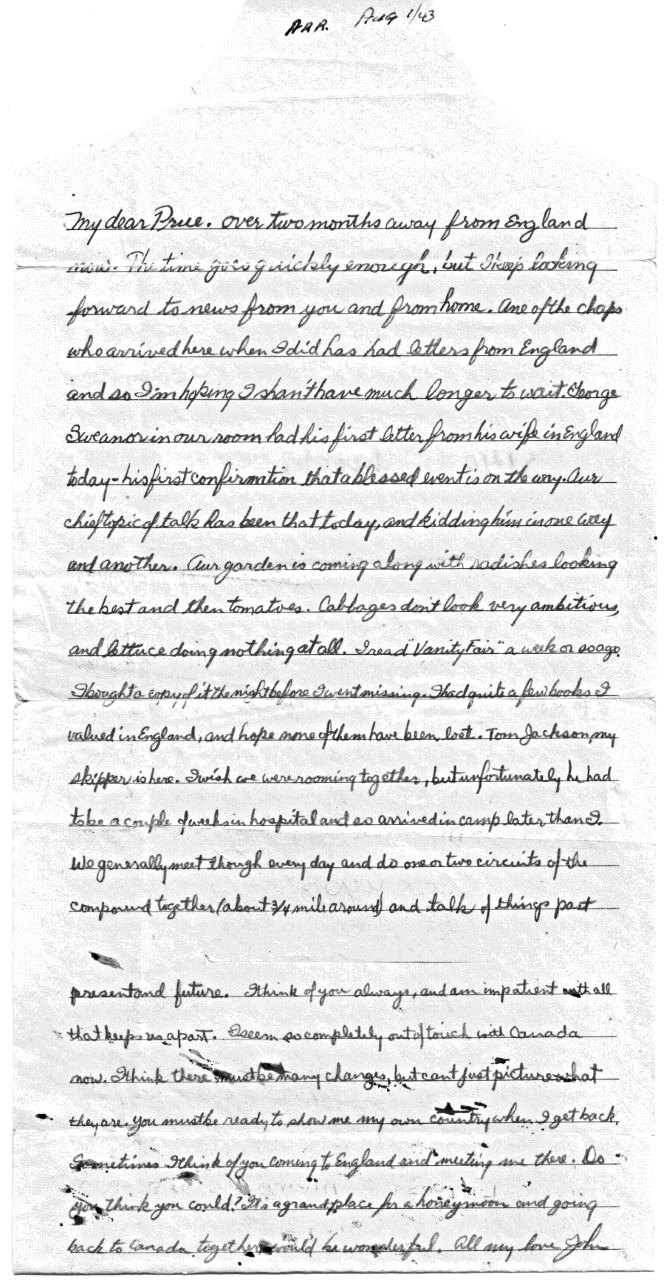 ARR. Aug 1/43
My dear Prue. Over two months away from England
now. The time goes quickly enough, but I keep looking
forward to news from you and from home. One of the chaps
who arrived here when I did has had letters from England
and so I'm hoping I shan't have much longer to wait. George
Sweanor in our room had his first letter from his wife in England
today - his first confirmation that a blessed event is on the way. Our
chief topic of talk has been that today, and kidding him in one way
and another. Our garden is coming along with radishes looking
the best and then tomatoes. Cabbages don't look very ambitious,
and lettuce doing nothing at all. I read "Vanity Fair" a week or so ago.
I bought a copy of it the night before I went missing. I had quite a few books I
valued in England, and hope none of them have been lost. Tom Jackson, my
skipper is here. I wish we were rooming together, but unfortunately he had
to be a couple of weeks in hospital and so arrived in camp later than I.
We generally meet though every day and do one or two circuits of the
compound together (about 3/4 mile around) and talk of things past
present and future. I think of you always, and am impatient with all
that keeps us apart. I seem so completely out of touch with Canada
now. I think there must be many changes, but can't just picture what
they are. You must be ready to show me my own country when I get back.
Sometimes I think of you coming to England and meeting me there. Do
you think you could? It's a grand place for a honeymoon and going
back to Canada together would be wonderful. All my love John